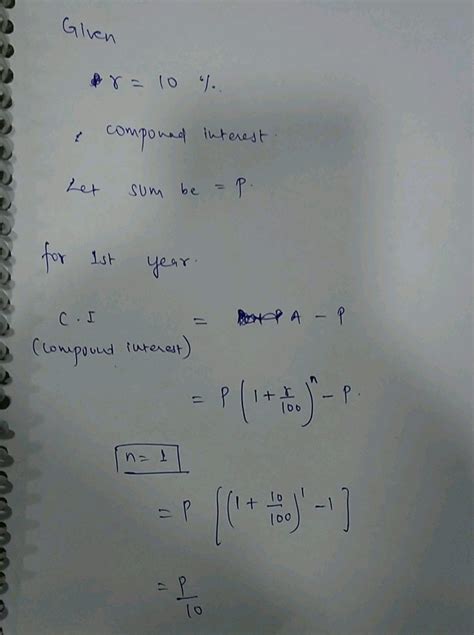 Given
r = 10 %.
compound interest.
Let sum be = P.
for 1st year.
C.I = A - P
(compound interest)
= P (1 + r/100)^n - P.
n = 1
= P [(1 + 10/100)^1 - 1]
= P/10